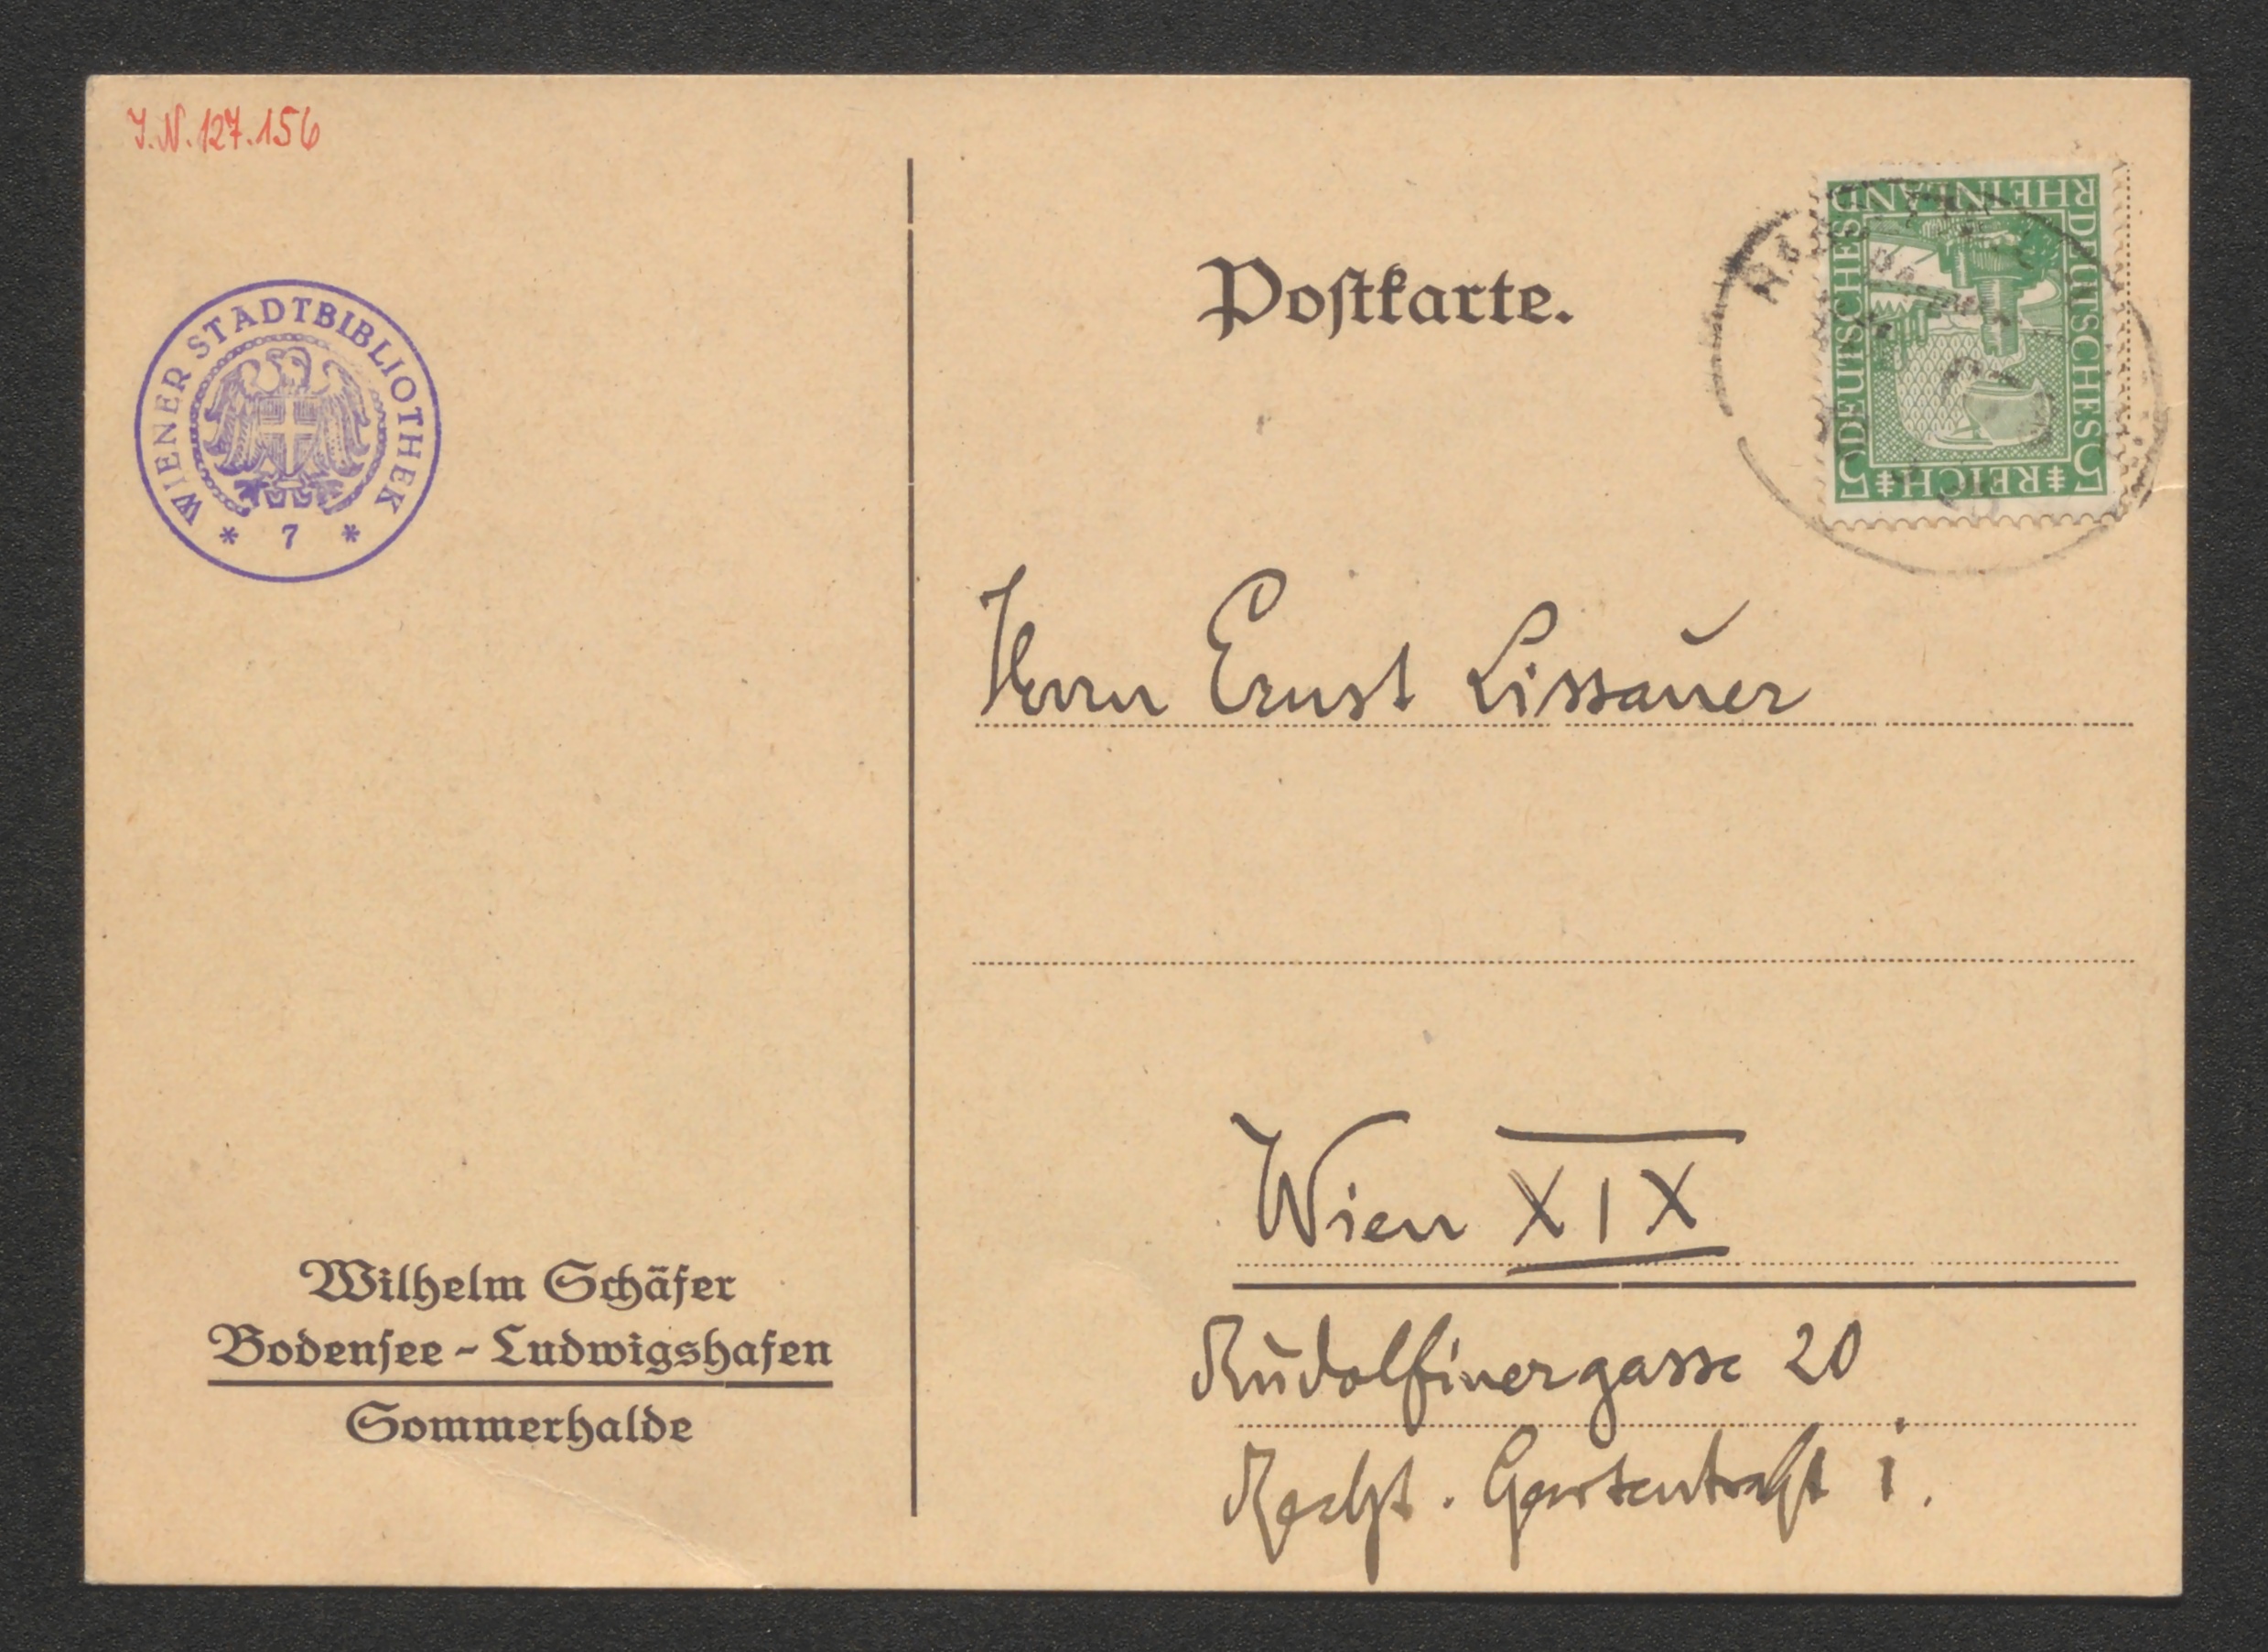 J.N. 127.156
WIENER STADTBIBLIOTHEK
* 7 *
Postkarte.
RHEINLAND
DEUTSCHES
DEUTSCHES
5 REICH 5
Herrn Ernst Lissauer
Wien XIX
Rudolfinergasse 20
Gartentrakt i.
Wilhelm Schäfer
Bodensee - Ludwigshafen
Sommerhalde